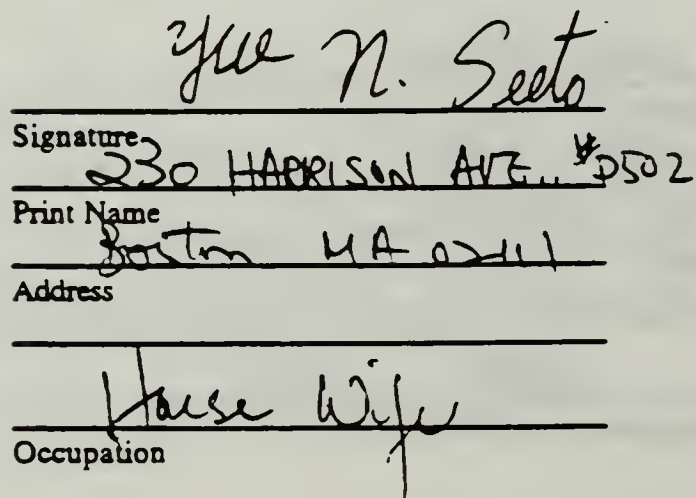 Yue N. Seeto
Signature
230 HARRISON AVE.. #D502
Print Name
Boston MA 02111
Address
House Wife
Occupation